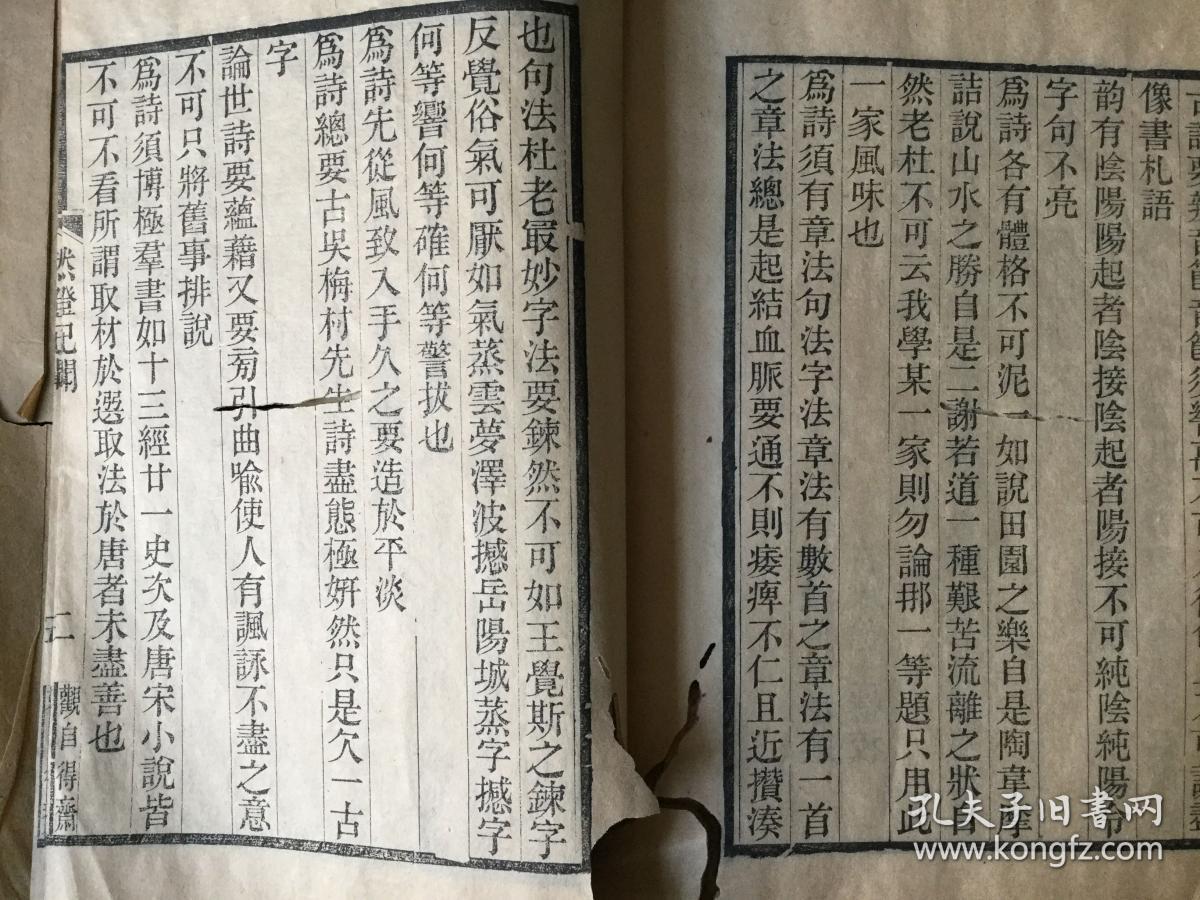 像書札語
韵有陰陽陽起者陰接陰起者陽接不可純陰純陽令
字句不亮
爲詩各有體格不可泥一如說田園之樂自是陶韋摩
詰說山水之勝自是二謝若道一種艱苦流離之狀自
然老杜不可云我學某一家則勿論那一等題只用此
一家風味也
爲詩須有章法句法字法章法有數首之章法有一首
之章法總是起結血脈要通不則痿痺不仁且近攢湊
也句法杜老最妙字法要鍊然不可如王覺斯之鍊字
反覺俗氣可厭如氣蒸雲夢澤波撼岳陽城蒸字撼字
何等響何等確何等警拔也
爲詩先從風致入手久之要造於平淡
爲詩總要古吳梅村先生詩盡態極妍然只是欠一古
字
論世詩要蘊藉又要旁引曲喻使人有諷詠不盡之意
不可只將舊事排說
爲詩須博極羣書如十三經廿一史次及唐宋小說皆
不可不看所謂取材於選取法於唐者未盡善也
然鐙記聞
二
觀自得齋
孔夫子旧书网
www.kongfz.com